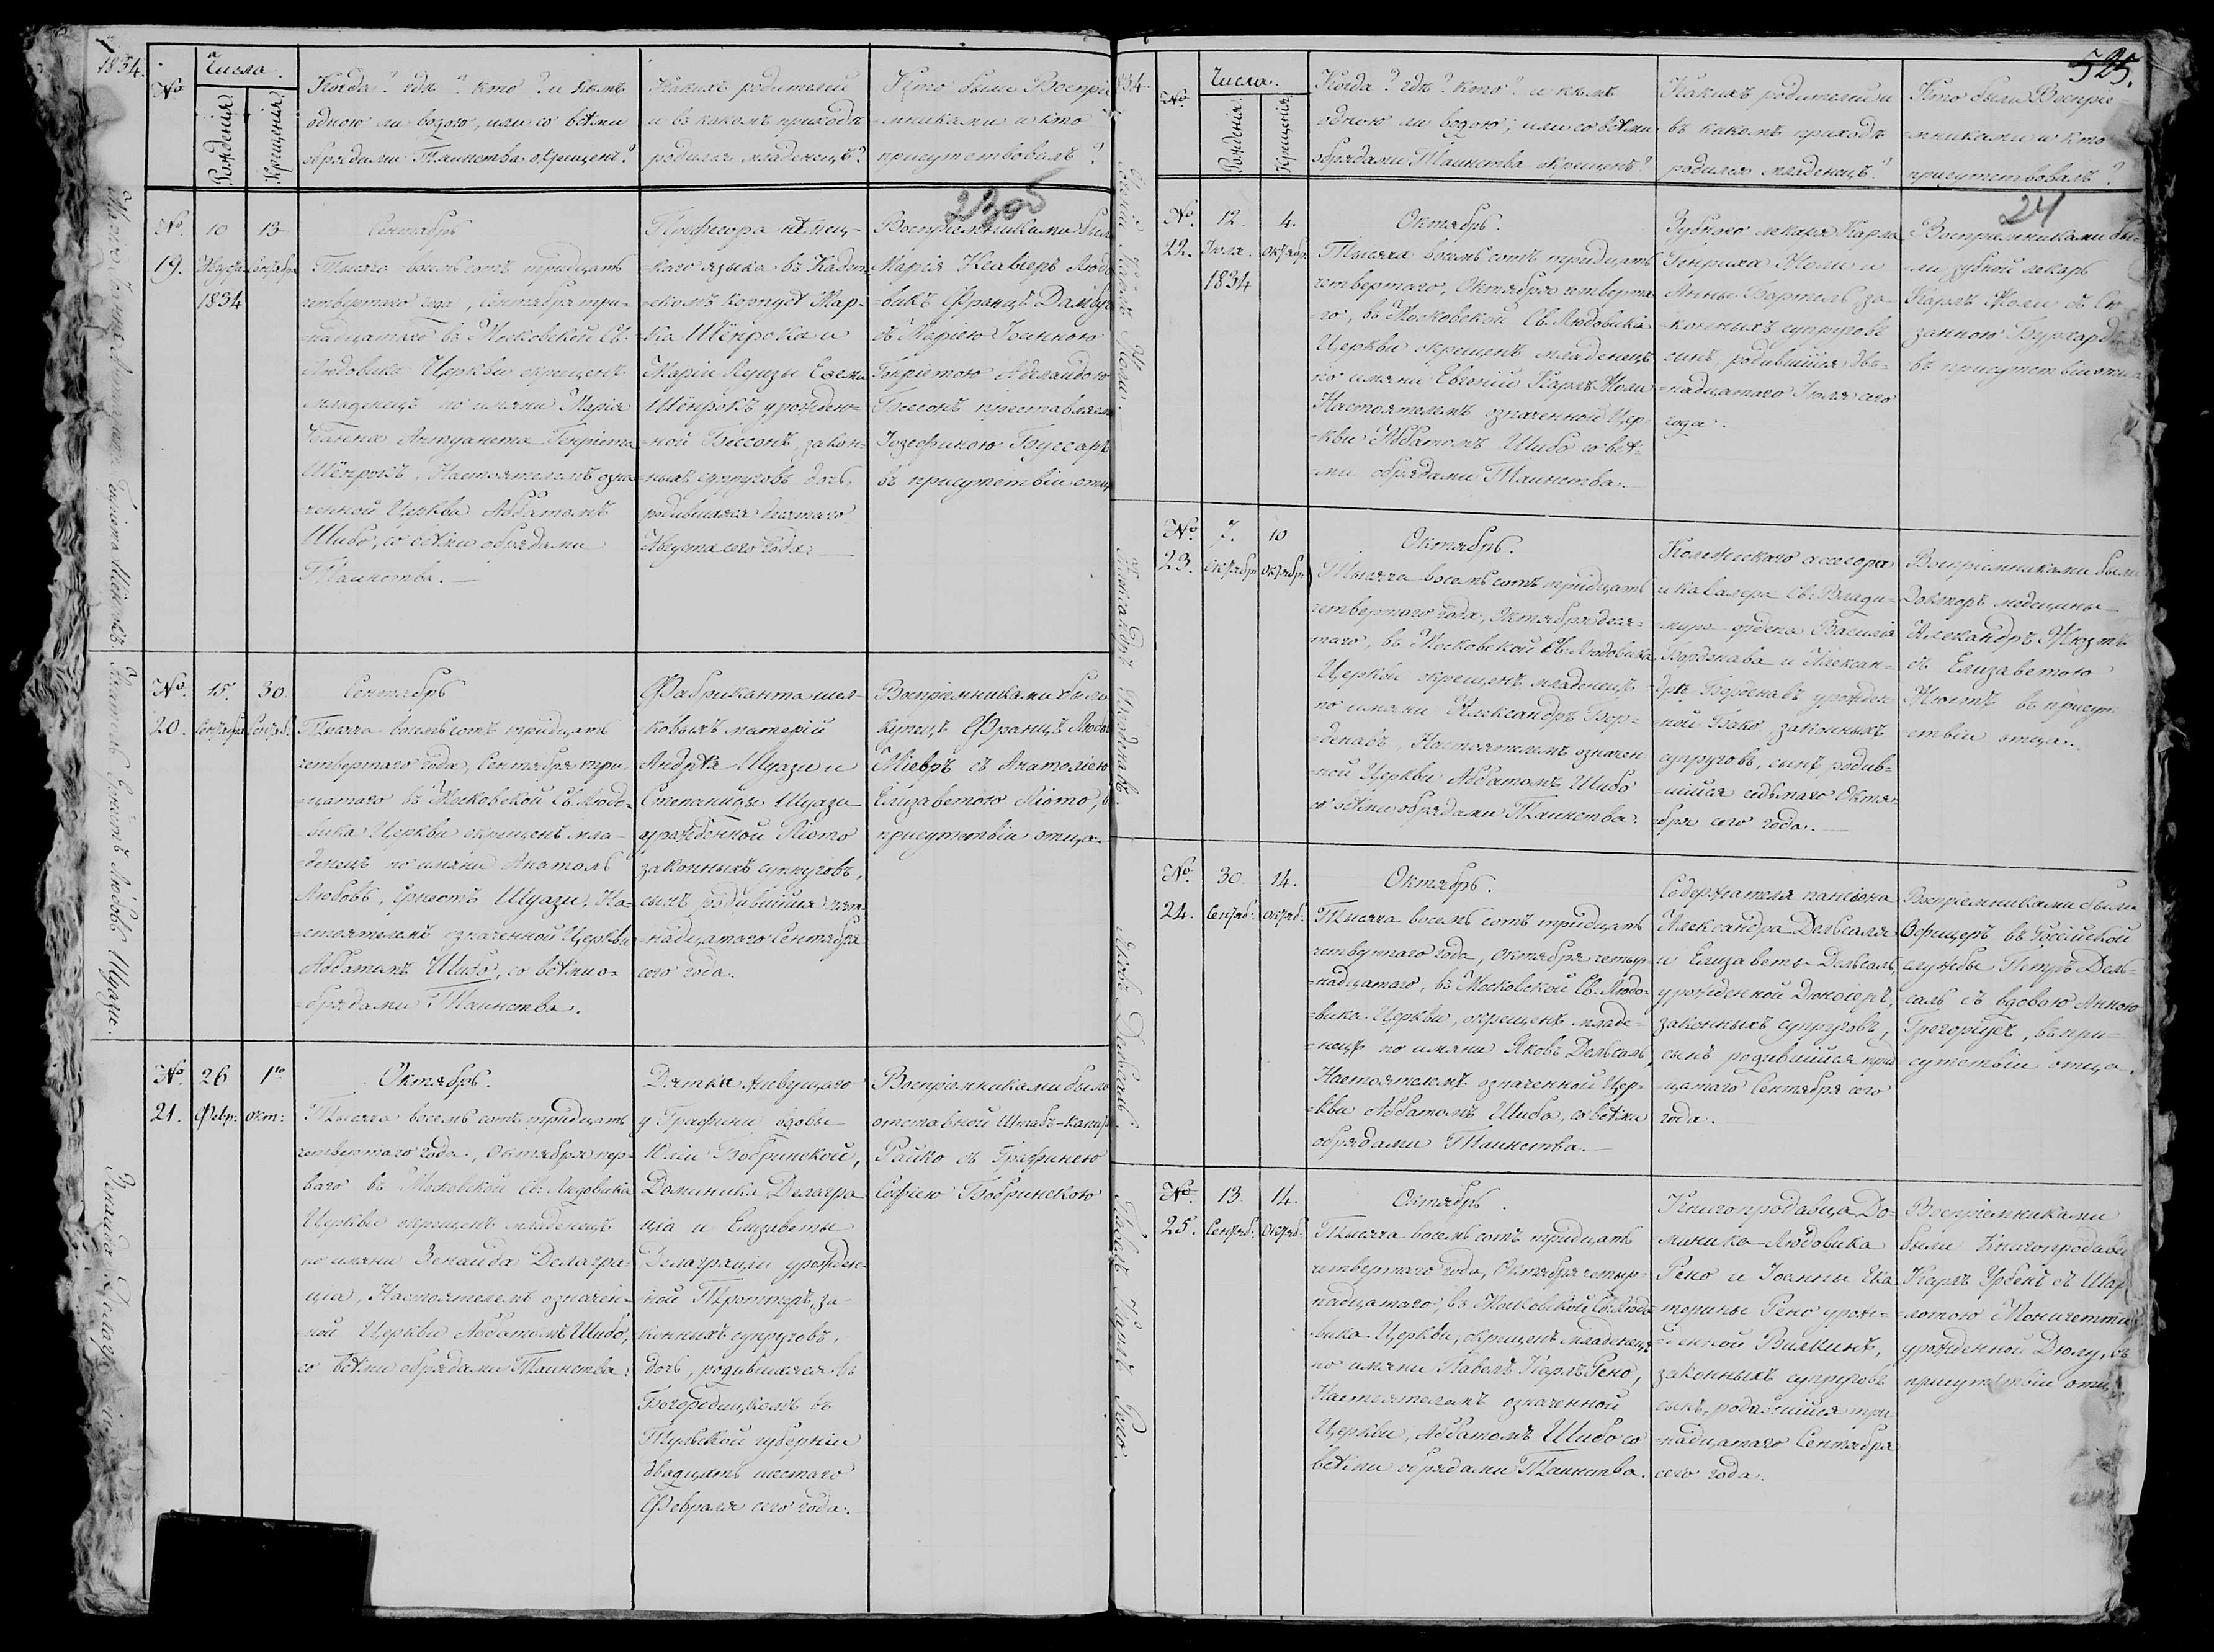 1834.
№
Числа.
Рожденія.
Крещенія.
Когда? гдѣ? кто? и кѣмъ
одною ли водою, или со всѣми
обрядами Таинства окрещенъ?
Какихъ родителей
и въ какомъ приходѣ
родился младенецъ?
Кто были Воспрі
-мниками и кто
присутствовалъ?
23об
№ 19.
10
1834
13
Сентябрь
Тысяча восемь сотъ тридцать
четвертаго года, Сентября три-
надцатаго въ Московской Св:
Людовика Церкви окрещенъ
младенецъ по имяни Марія
Іоанна Антуанета Генріета
Шёнрокъ, Настоятелемъ озна-
ченной Церкви Аббатомъ
Шибо, со всѣми обрядами
Таинства.
Професора нѣмец-
-каго языка въ Кадет-
-скомъ корпусѣ Мар-
-ка Шёнрока и
Маріи Луизы
Шёнрокъ урожден-
-ной Бессонъ, закон-
-ныхъ супруговъ дочь,
родившаяся десятаго
Августа сего года.
Воспріемниками был
Марія Ксавьеръ Людо
-викъ Францъ
съ Маріею Іоанною
Генріетою Аделаидою
Бессонъ
Іозефиною Буссаръ
въ присутствіи отца
№ 20.
15.
Сентября
30.
Сентяб.
Сентябрь
Тысяча восемь сотъ тридцать
четвертаго года, Сентября три-
-дцатаго въ Московской Св. Людо-
-вика Церкви окрещенъ мла-
-денецъ по имяни Анатоль
Любовь, Ернестъ Шуази, На-
-стоятелемъ означенной Церкви
Аббатомъ Шибо, со всѣми о-
-брядами Таинства.
Фабриканта шел-
-ковыхъ матерій
Андрѣя Шуази и
Степаниды Шуази
урожденной Ліото
законныхъ супруговъ,
сынъ родившійся пят-
-надцатаго Сентября
сего года.
Воспріемниками были
купецъ Францъ Людов
Міевръ съ Анатоліею
Елизаветою Ліото, въ
присутствіи отца.
№ 21.
26
Февр:
1го
окт:
Октябрь.
Тысяча восемь сотъ тридцать
четвертаго года, Октября пер-
ваго въ Московской Св: Людовика
Церкви окрещенъ младенецъ
по имяни Зенаида Делагра-
ціа, Настоятелемъ означен-
-ной Церкви Аббатомъ Шибо,
со всѣми обрядами Таинства.
Дятка живущаго
у Графини вдовы
Юліи Бобринской,
Доминика Делагра
ціа и Елизаветы
Делаграціи урожден-
ной Троттеръ, за-
конныхъ супруговъ,
дочь, родившаяся въ
Богородицкомъ въ
Тульской губерніи
двадцать шестаго
Февраля сего года.
Воспріемниками были
отставной Штабъ-капит
Райко съ Графинею
Софіею Бобринскою
525.
834.
№
Числа.
Рожденія.
Крещенія.
Когда? гдѣ? кто? и кѣмъ
одною ли водою, или со всѣми
обрядами Таинства окрещенъ?
Какихъ родителей и
въ какомъ приходѣ
родился младенецъ?
Кто были Воспріе
-мниками и кто
присутствовалъ?
24
№ 22.
12
Іюля.
1834
4.
октябр.
Октябрь.
Тысяча восемь сотъ тридцать
четвертаго, Октября четверта-
-го, въ Московской Св. Людовика
Церкви окрещенъ младенецъ
по имяни Евгеній Карлъ Жоли
Настоятелемъ означенной Цер-
-кви Аббатомъ Шибо со всѣ-
-ми обрядами Таинства.
Зубнаго лекаря Карла
Генриха Жоли и
Анны Бартель за-
-конныхъ супруговъ
сынъ, родившійся две-
-надцатаго Іюля сего
года.
Воспріемниками бы-
-ли зубной лекарь
Карлъ Жоли съ Сю-
занною
въ присутствіи отца
№ 23.
7.
октября
10
октябр.
Октябрь.
Тысяча восемь сотъ тридцать
четвертаго года, Октября деся-
таго, въ Московской Св. Людовика
Церкви окрещенъ младенецъ
по имяни Александръ Бор-
-денавъ, Настоятелемъ означен
-ной Церкви Аббатомъ Шибо
со всѣми обрядами Таинства.
Коллежскаго ассесора
и кавалера Св: Влади-
-мира ордена Василія
Борденава и Алексан-
-дры Борденавъ урожден-
-ной Бако, законныхъ
супруговъ, сынъ родив-
-шійся седьмаго Октя-
-бря сего года.
Воспріемниками были
Докторъ медецины
Александръ Жюстъ
съ Елизаветою
Жюстъ въ присут
-ствіи отца.
№ 24.
30.
Сентяб.
14.
октяб.
Октябрь.
Тысяча восемь сотъ тридцать
четвертаго года, Октября четыр-
-надцатаго, въ Московской Св. Людо-
-вика Церкви, окрещенъ младе-
-нецъ по имяни Яковъ Дельсаль
Настоятелемъ означенной Цер-
-кви Аббатомъ Шибо, со всѣми
обрядами Таинства.
Содержателя пансіона
Александра Дельсаля
и Елизаветы Дельсаль,
урожденной
законныхъ супруговъ,
сынъ родившійся трид
-цатаго Сентября сего
года.
Воспріемниками были
Офицеръ въ Россійской
службѣ Петръ Дель-
саль съ вдовою Анною
Грегоріусъ, въ при-
сутствіи отца.
№ 25.
13.
Сентяб.
14.
Октяб.
Октябрь.
Тысяча восемь сотъ тридцать
четвертаго года, Октября четыр-
надцатаго, въ Московской Св. Людо-
-вика Церкви, окрещенъ младенецъ
по имяни Павелъ Карлъ Рено,
Настоятелемъ означенной
Церкви, Аббатомъ Шибо со
всѣми обрядами Таинства.
Книгопродавца До-
-миника-Людовика
Рено и Іоанны Ека-
терины Рено урож-
-денной Вилкинъ,
законныхъ супруговъ
сынъ, родившійся три-
-надцатаго Сентября
сего года.
Воспріемниками
были Книгопродавец
Карлъ Урбенъ съ Шар
-лотою
урожденной Дюлу, въ
присутствіи отца